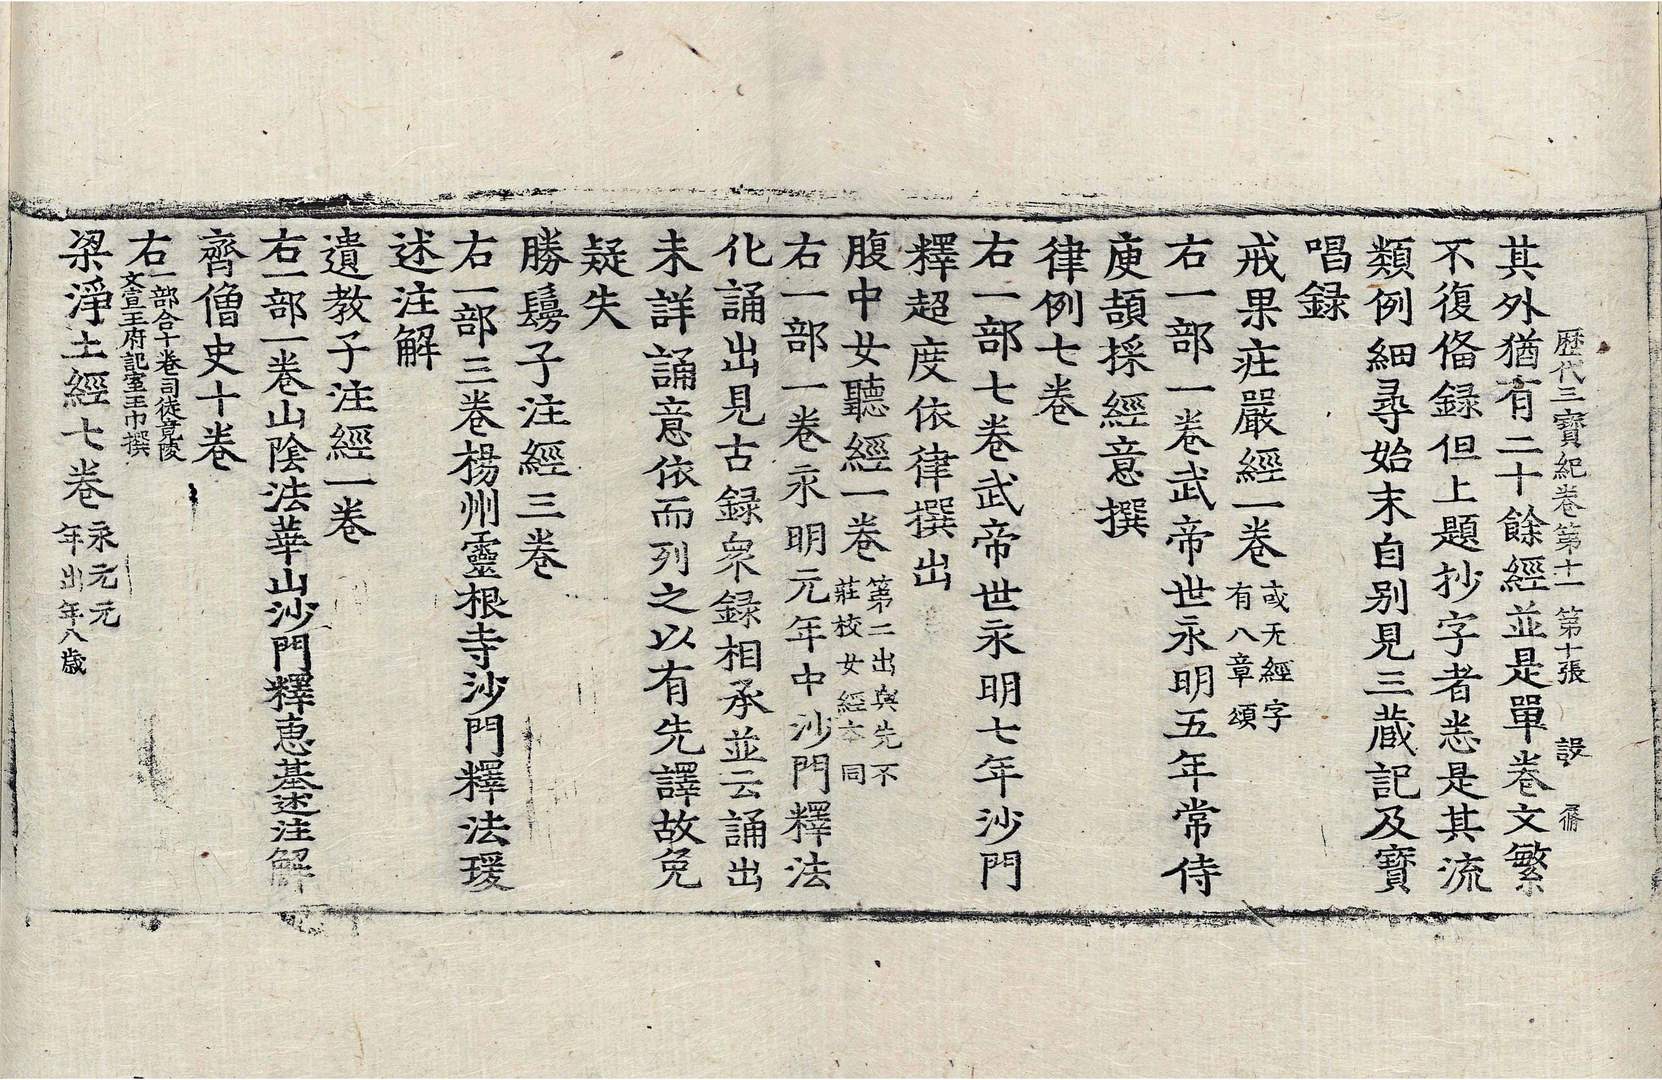 歷代三寶紀卷第十一 第十張 設
其外猶有二十餘經並是單卷文繁
不復俻録但上題抄字者悉是其流
類例細尋始末自别見三藏記及寶
唱録
戒果庄嚴經一卷 或无經字
有八章頌
右一部一卷武帝世永明五年常侍
庾頡採經意撰
律例七卷
右一部七卷武帝世永明七年沙門
釋超度依律撰出
腹中女聽經一卷 第二出與先不
莊校女經本同
右一部一卷永明元年中沙門釋法
化誦出見古録衆録相承並云誦出
未詳誦意依而列之以有先譯故免
疑失
勝鬘子注經三卷
右一部三卷楊州靈根寺沙門釋法瑗
述注解
遺教子注經一卷
右一部一卷山陰法華山沙門釋惠基述注解
齊僧史十卷
右一部合十卷司徒竟陵
文宣王府記室王巾撰
梁淨土經七卷 永元元
年出年八歲